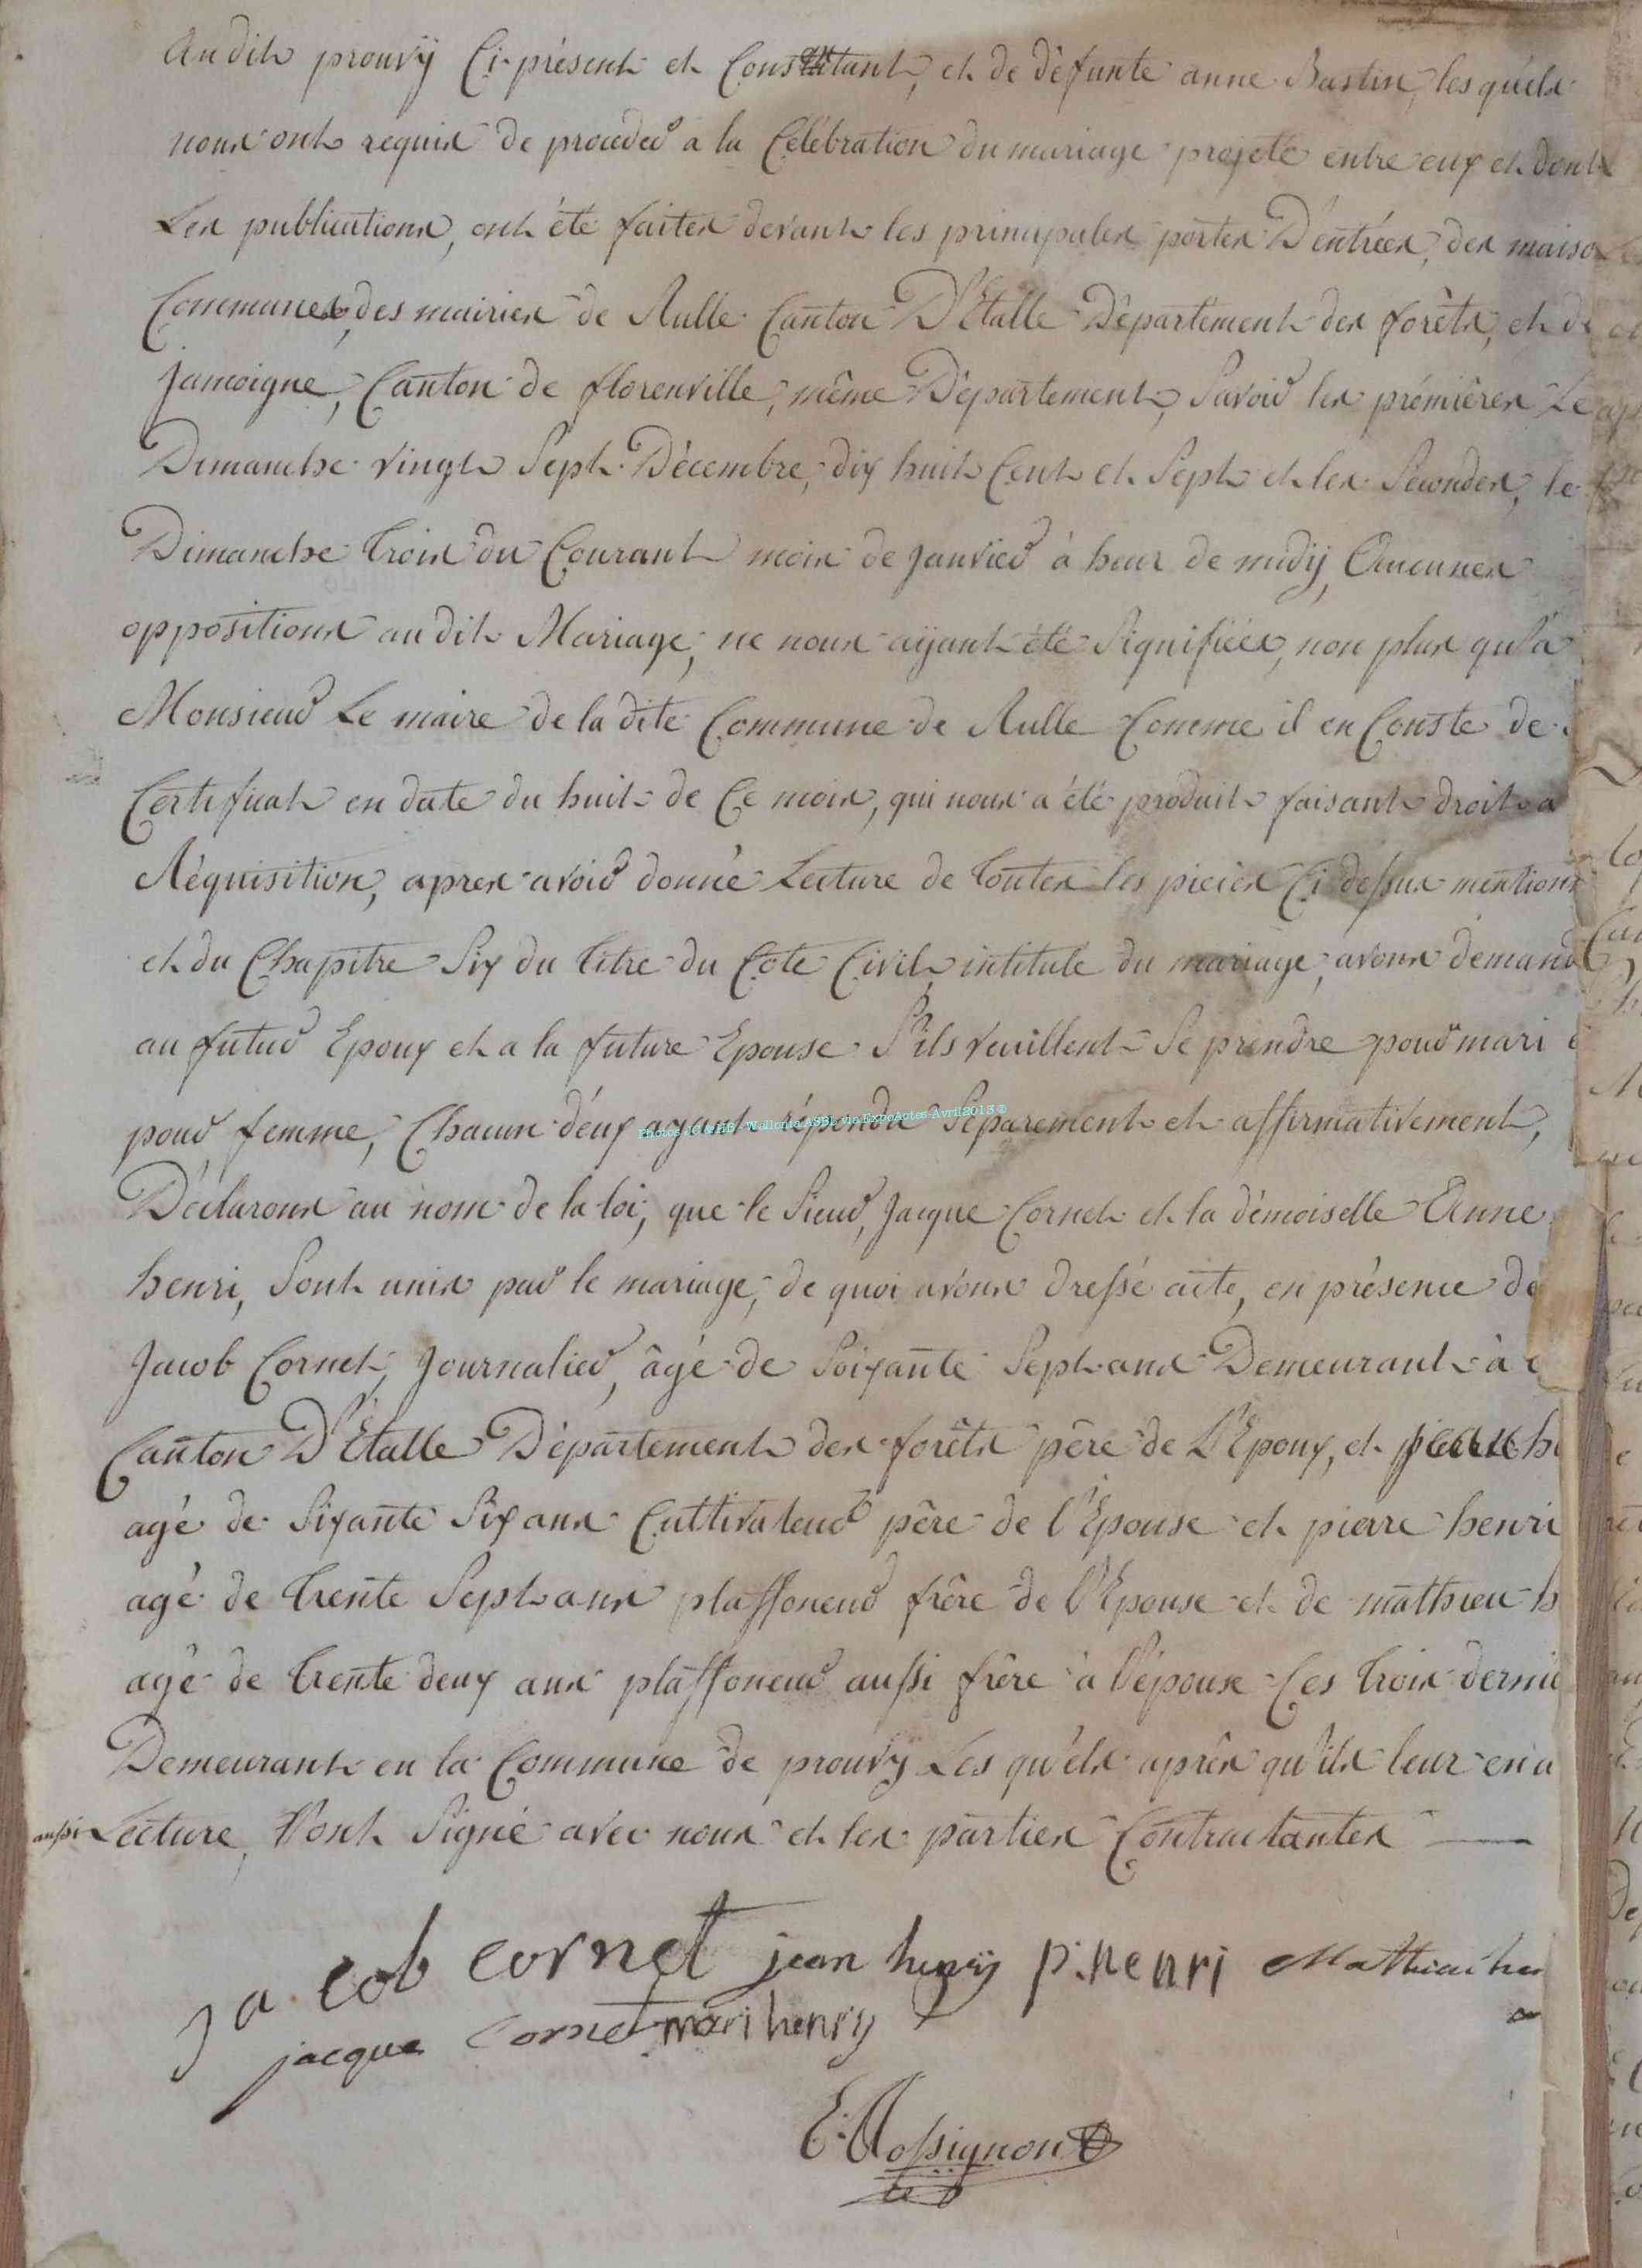 audit prouvÿ Ci-présent et Constitant, et de défunte anne Bastin, les quéls
nous ont requis de proceder a la Célébration du mariage projeté entre eux et dont
Les publications, ont été faites devant les principales portes D'entrées, des maiso
Communes, des mairies de Rulle Canton D'Etalle Département des forêts, et de
Jamoigne, Canton de florenville, même Département, Savoir les prémières Le
Dimanche vingt Sept Décembre, dix huit Cent et Sept et les Secondes, le
Dimanche trois du Courant mois de Janvier à heur de midÿ, Aucunes
oppositions au dit Mariage, ne nous aÿant été Signifiées, non plus qu'à
Monsieur Le maire de la dite Commune de Rulle Comme il en Conste de
Certificat en date du huit de Ce mois, qui nous a été produit faisant droit a
Réquisition, apres avoir donné Lecture de toutes les pieces Ci dessus mentionn
et du Chapitre Six du titre du Cote Civil intitule du mariage, avons demand
au futur Epoux et a la future Epouse S'ils veuillent Se prendre pour mari e
pour femme, Chacun d'eux ayant répondu Séparement et affirmativement,
Déclarons au nom de la loi, que le Sieur, Jacque Cornet et la démoiselle Anne
henri, Sont unis par le mariage, de quoi avons dressé acte, en présence de
Jacob Cornet, Journalier, âgé de Soixante Sept ans Demeurant à
Canton D'Etalle Département des forêts père de L'Epoux, et h
agé de Sixante Six ans Cultivateur père de l'Epouse et pierre henri
agé de trente Sept ans plaffoneur frère de l'Epouse et de mathieu h
agé de trente deux ans plaffoneur aussi frère à l'épouse Ces trois dernie
Demeurant en la Commune de prouvy Les qu'els après qu'ils leur en a
aussi Lecture, l'ont Signé avec nous et les parties Contractantes
jacob cornet jean henrÿ p. henri Mathieu hen
jacque Cornet mari henrÿ
E. Rossignon
Photos © GHFPBW Wallonia ASBL via ExpoActes Avril 2013 ©